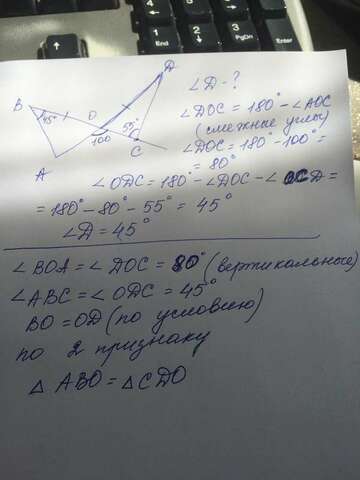 D
∠D - ?
B
45°
O
100
55°
C
A
∠DOC = 180° - ∠AOC
(смежные углы)
∠DOC = 180° - 100° =
= 80°
∠ODC = 180° - ∠DOC - ∠OCD =
= 180° - 80° - 55° = 45°
∠D = 45°
∠BOA = ∠DOC = 80° (вертикальные)
∠ABC = ∠ODC = 45°
BO = OD (по условию)
по 2 признаку
△ABO = △CDO
End
PgDn
Enter
1
2
3